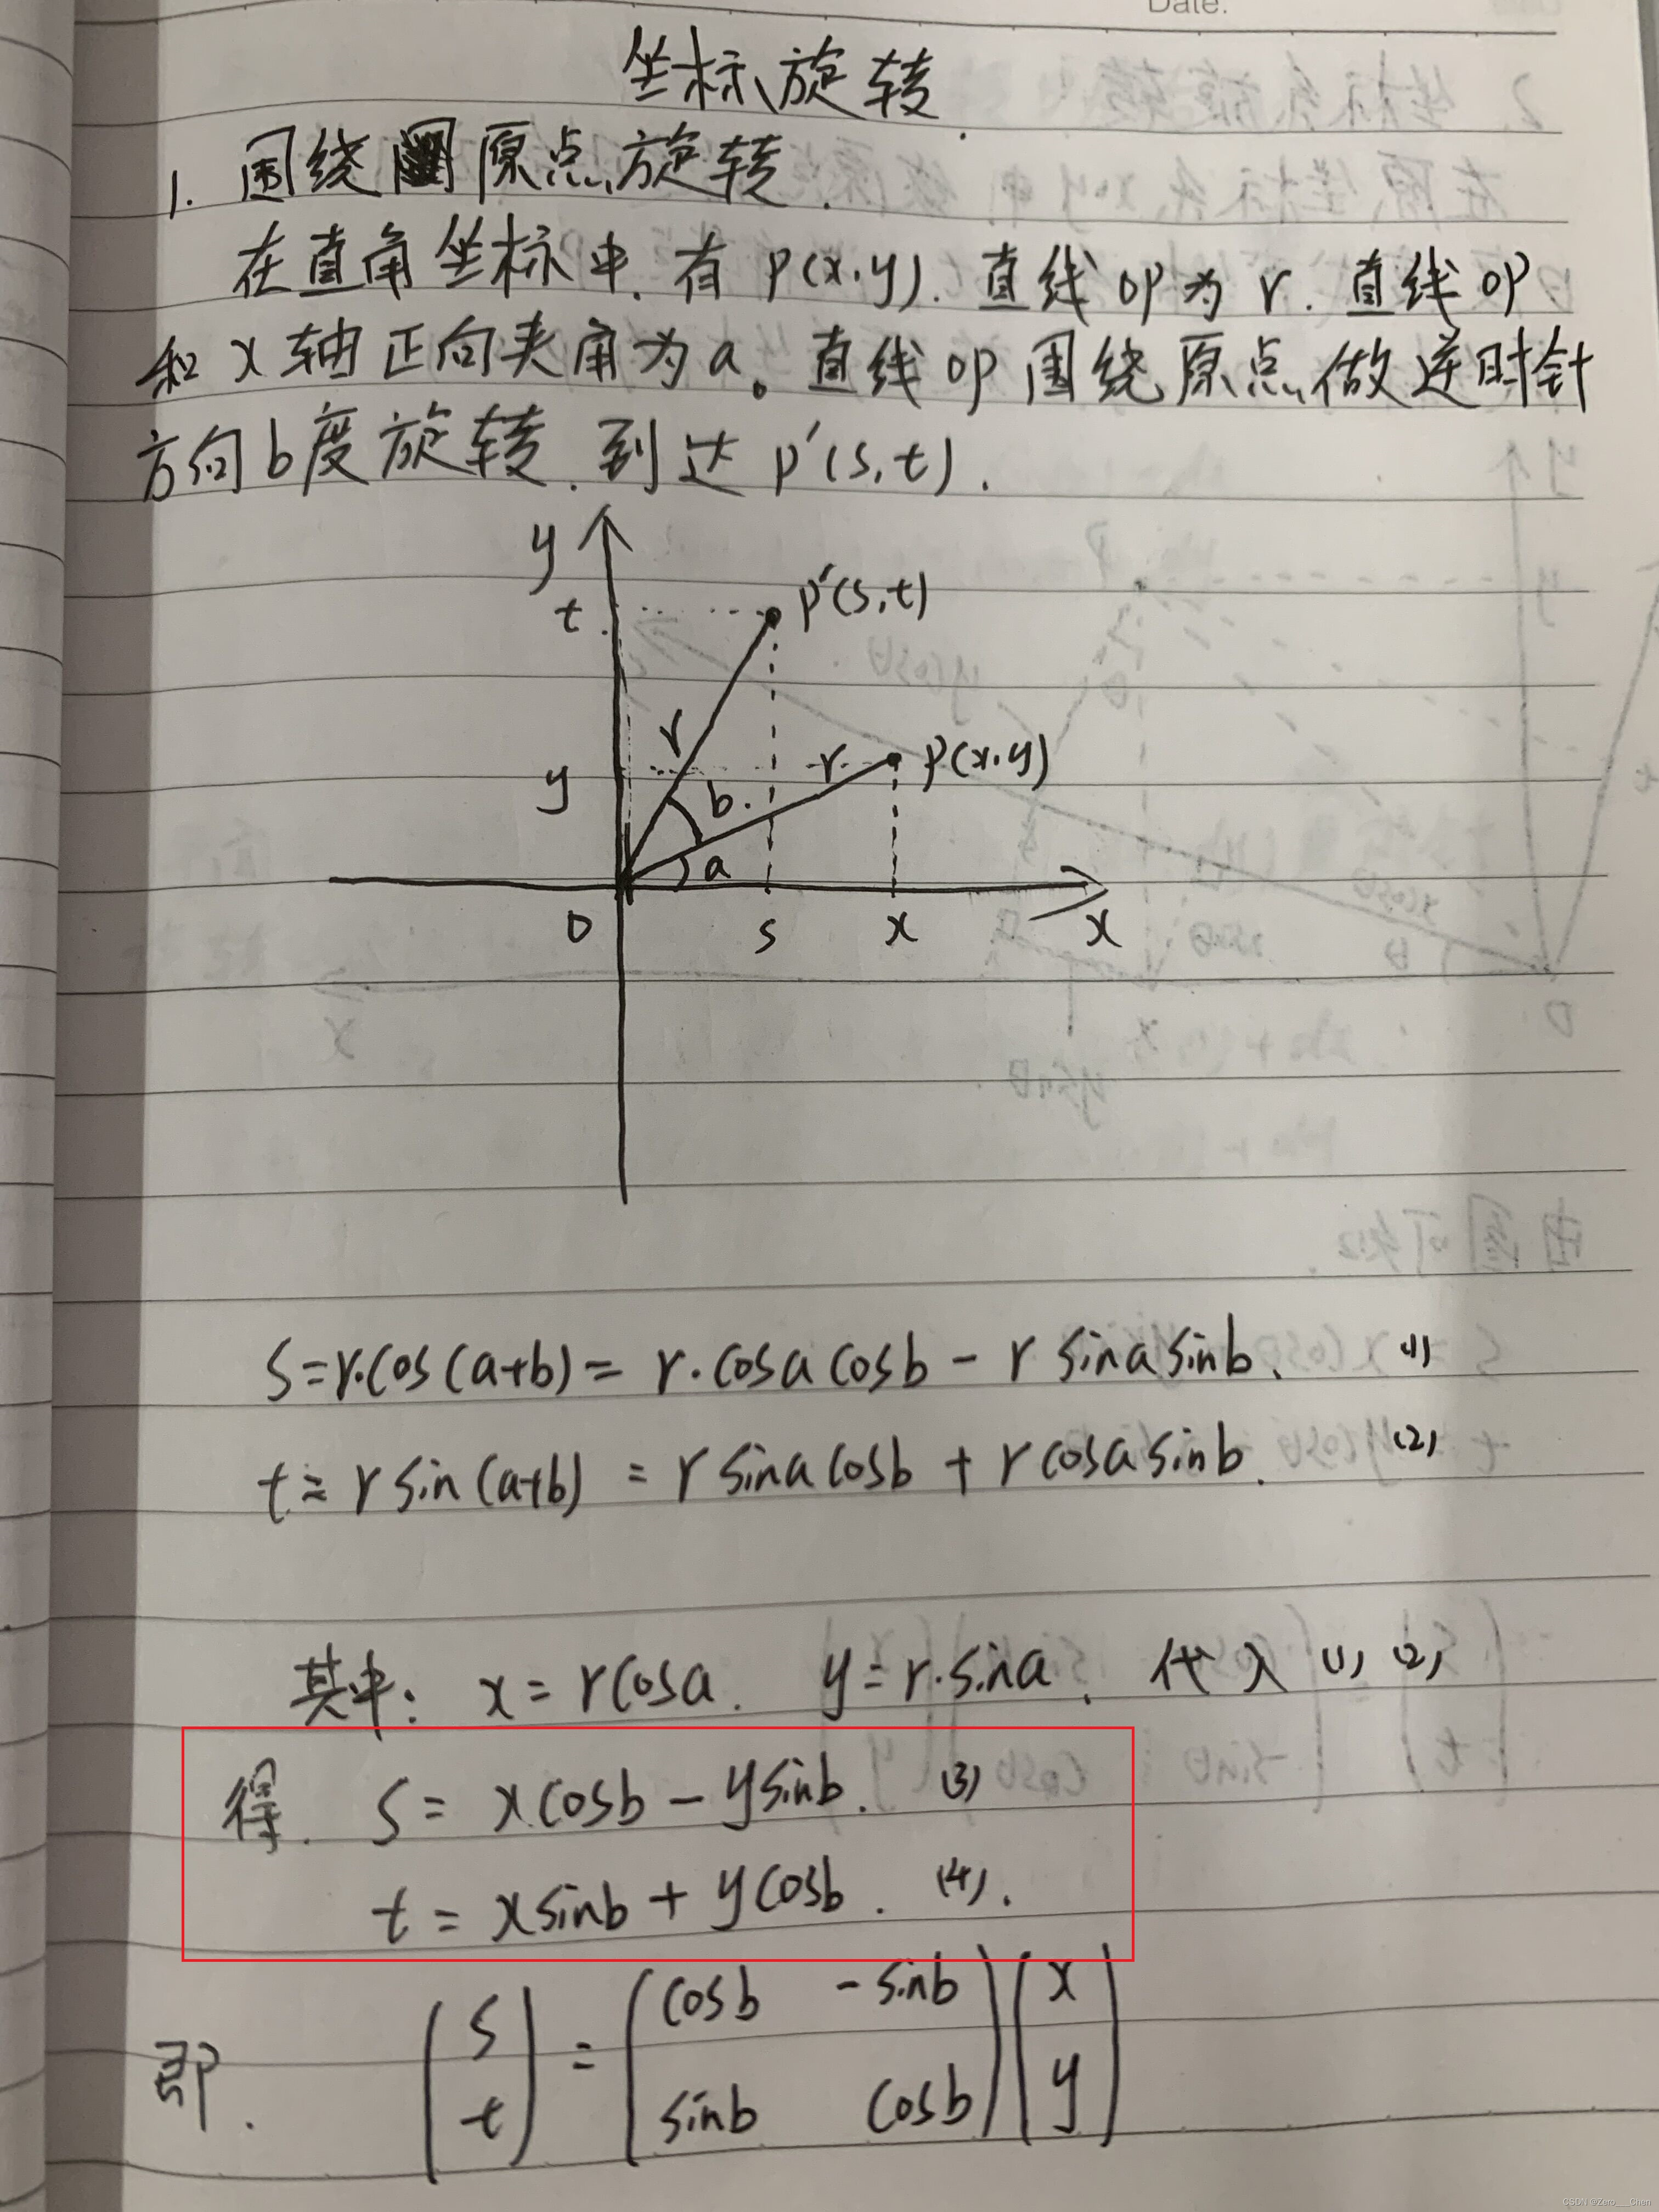 Date:
坐标旋转.
1. 围绕原点旋转.
在直角坐标中.有 P(x.y).直线OP为 r.直线OP
和 x 轴正向夹角为a。直线OP围绕原点做逆时针
方向b度旋转.到达 P'(s,t).
y
t
P'(s,t)
r
y
r
P(x.y)
b.
a
O
s
x
x
s=r.cos(a+b)= r.cosa cosb - r sina sinb. (1)
t= r sin(a+b) = r sina cosb + r cosa sinb. (2)
其中: x = r cosa. y = r.sina. 代入 (1) (2)
得. s = x cosb - y sinb. (3)
t = x sinb + y cosb. (4).
即. (s t) = (cosb -sinb sinb cosb) (x y)
CSDN @Zero___Chen